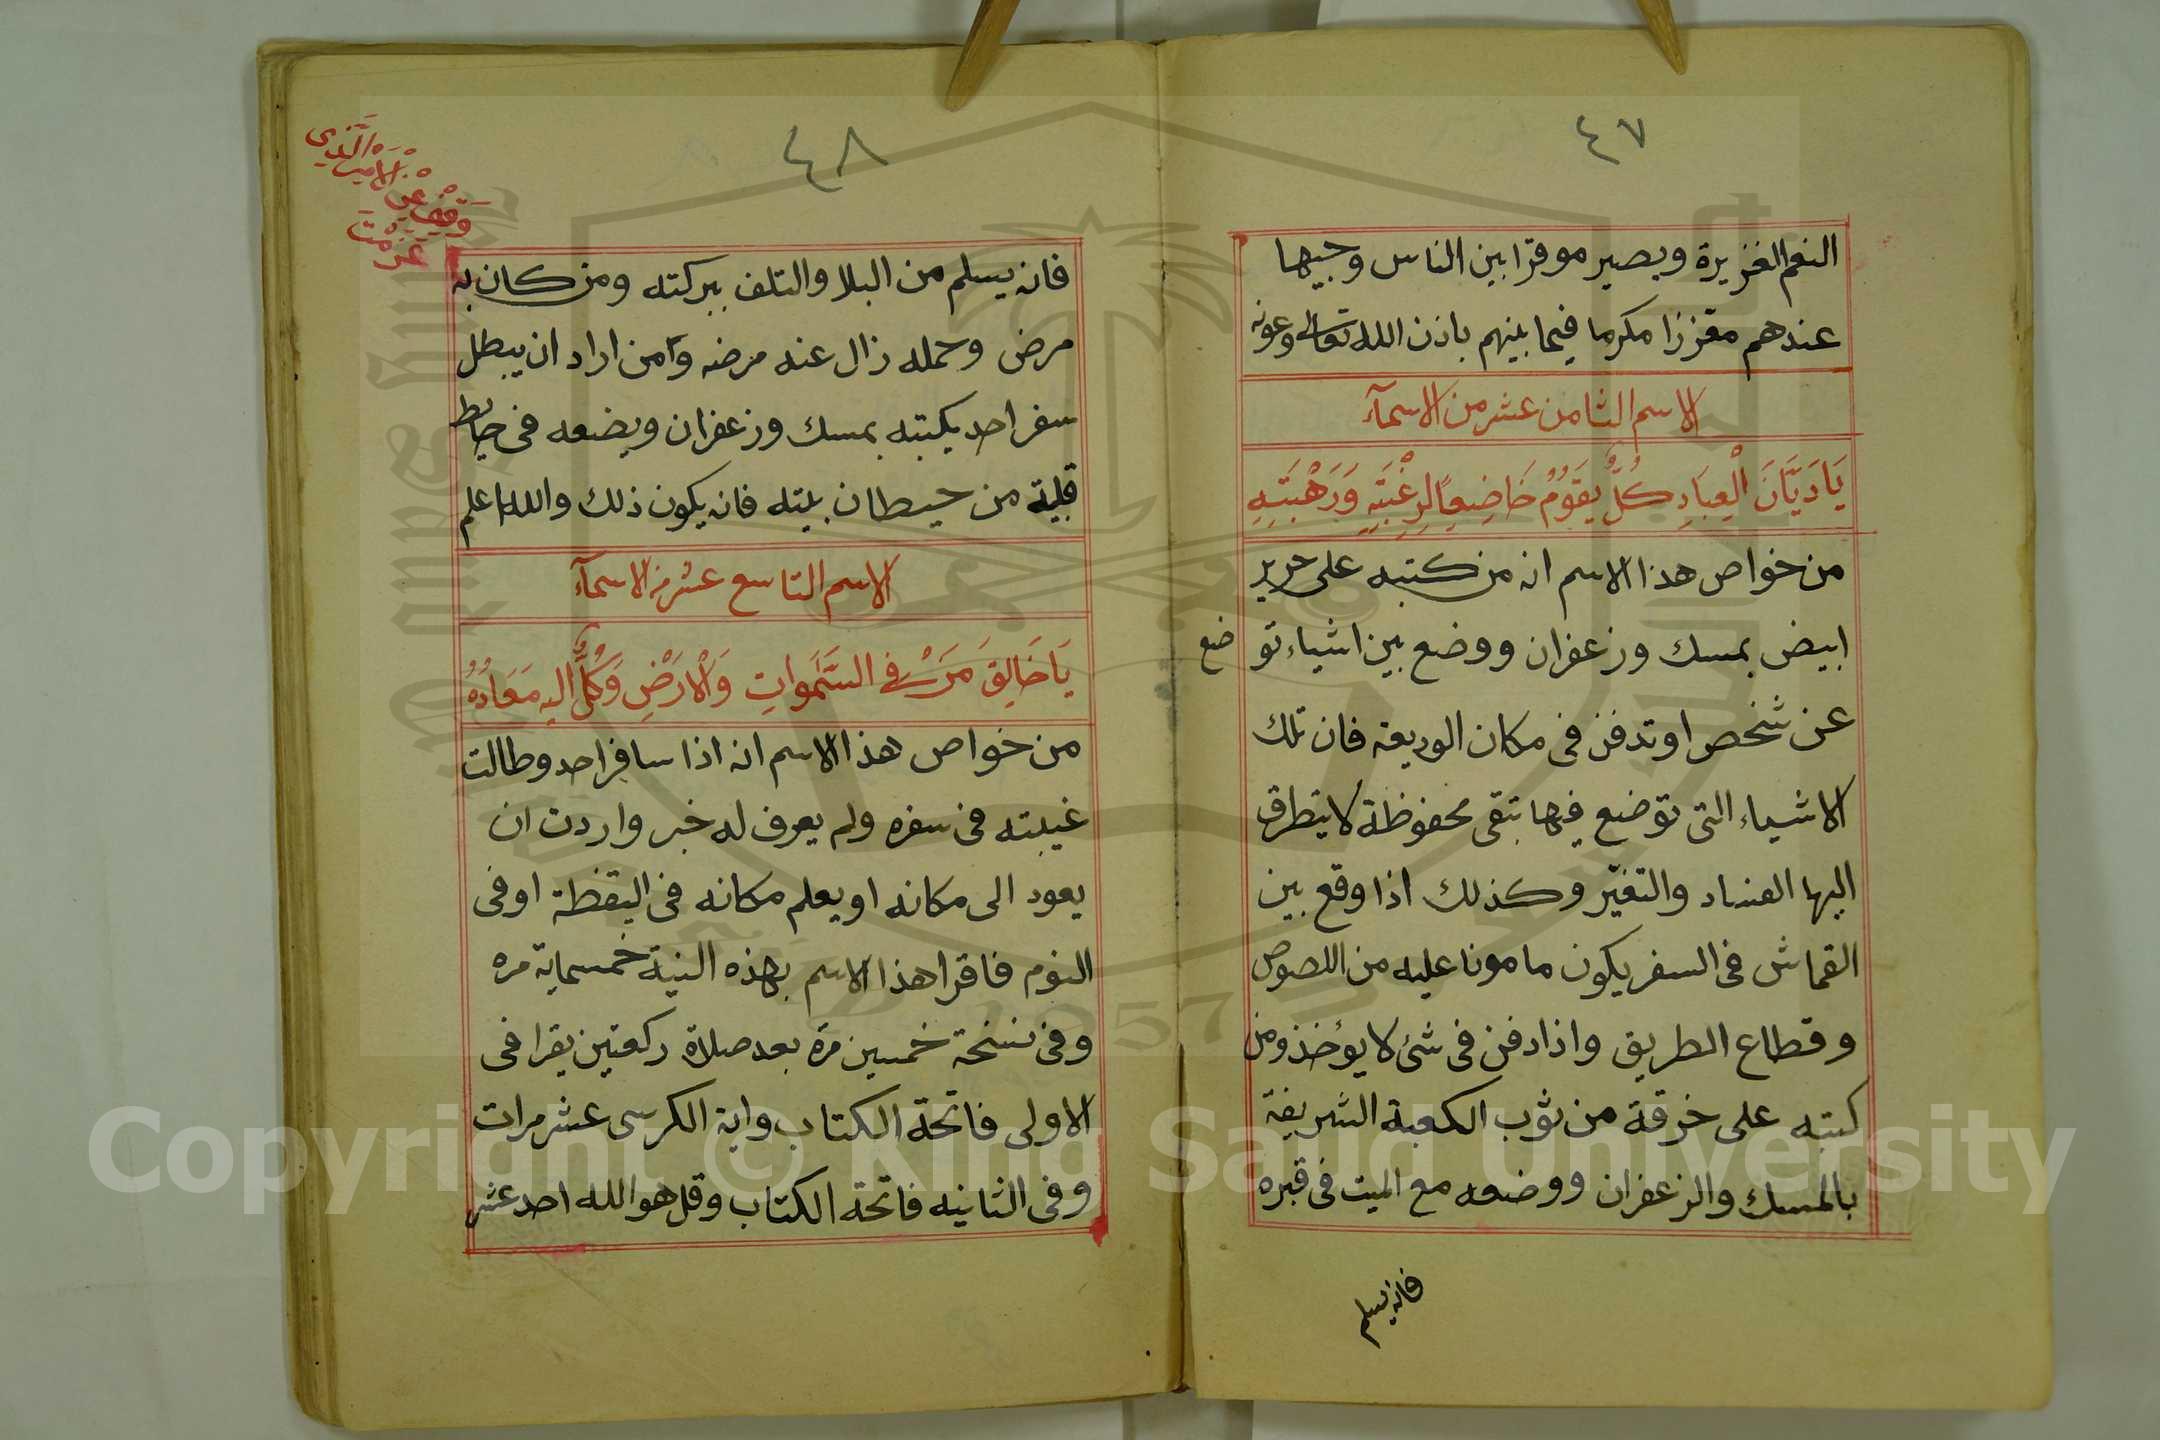 ٤٧
النعم الغزيرة ويصير موقرا بين الناس وجيها
عندهم معززا مكرما فيما بينهم باذن الله تعالى وعونه
الاسم الثامن عشر من الاسمآء
يَا دَيَّانَ الْعِبَادِ كُلٌّ يَقُومُ خَاضِعًا لِرَغْبَتِهِ وَرَهْبَتِهِ
من خواص هذا الاسم انه من كتبه على حرير
ابيض بمسك وزعفران ووضع بين اشياء تو ضع
عن شخص او تدفن فى مكان الوديعة فان تلك
الاشياء التى توضع فيها تبقى محفوظة لا يتطرق
اليها الفساد والتغيّر وكذلك اذا وقع بين
القماش فى السفر يكون مامونا عليه من اللصوص
وقطاع الطريق واذا دفن فى شئ لا يؤخذ ومن
كتبه على خرقة من ثوب الكعبة الشريفة
بالمسك والزعفران ووضعه مع الميت فى قبره
فانه يسلم
٤٨
فانه يسلم من البلا والتلف ببركته ومن كان به
مرض وحمله زال عنه مرضه ومن اراد ان يبطل
سفر احد يكتبه بمسك وزعفران ويضعه فى حايط
قبلية من حيطان بيته فانه يكون ذلك والله اعلم
الاسم التاسع عشر من الاسمآء
يَا خَالِقَ مَنْ فِي السَّمَوَاتِ وَالْأَرْضِ وَكُلٌّ اليه مَعَادُهُ
من خواص هذا الاسم انه اذا سافر احد وطالت
غيبته فى سفره ولم يعرف له خبر واردت ان
يعود الى مكانه او يعلم مكانه فى اليقظة او فى
النوم فاقرا هذا الاسم بهذه النية خمسماية مره
وفى نسخة خمسين مرة بعد صلاة ركعتين يقرا فى
الاولى فاتحة الكتاب واية الكرسى عشر مرات
وفى الثانيه فاتحة الكتاب وقل هو الله احد عشر
Copyright © King Saud University
1957